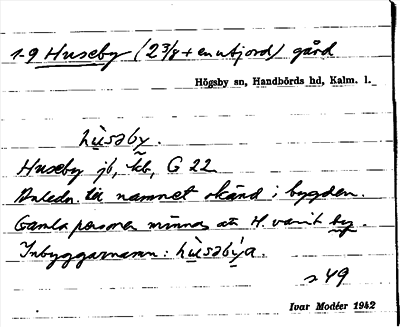 1-9 Huseby (2 3/8 + en utjord) gård
Högsby sn, Handbörds hd, Kalm. l.
hùsəby.
Huseby jb, kb, G 22
Anledn. till namnet okänd i bygden.
Gamla personer minnas att H. varit by.
Inbyggarnamn: hùsəbýa.
49
Ivar Modéer 1942